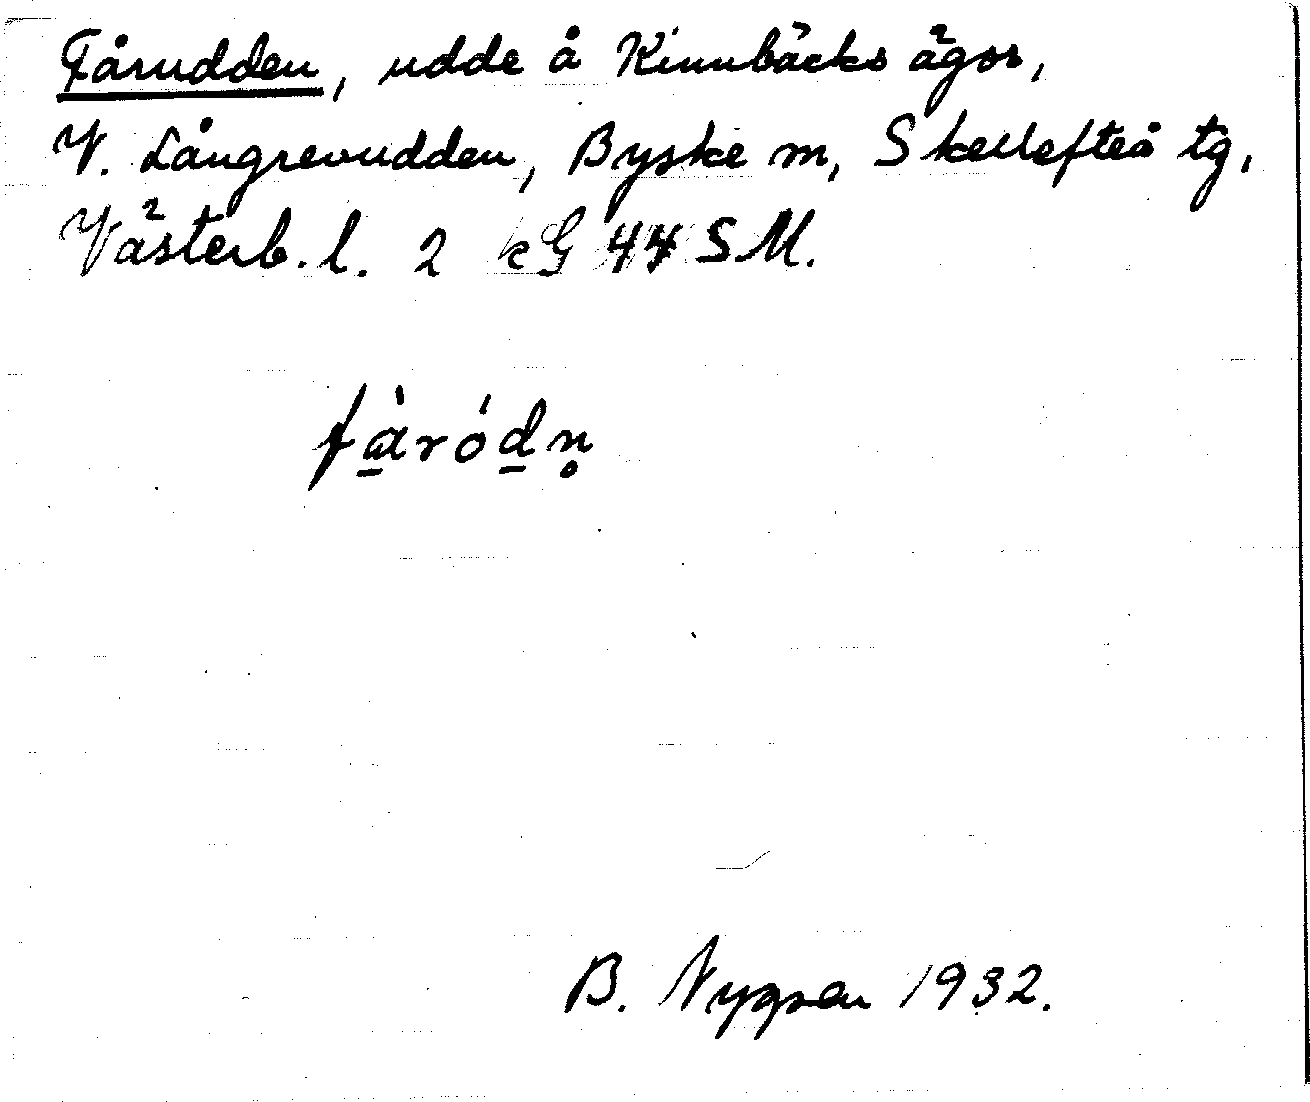 Fårudden, udde å Kinnbäcks ägor,
V. Långrevudden, Byske m, Skellefteå tg,
Västerb. l. 2 kG 44 SM.
få̱̀róḏn̥
B. Nygren 1932.